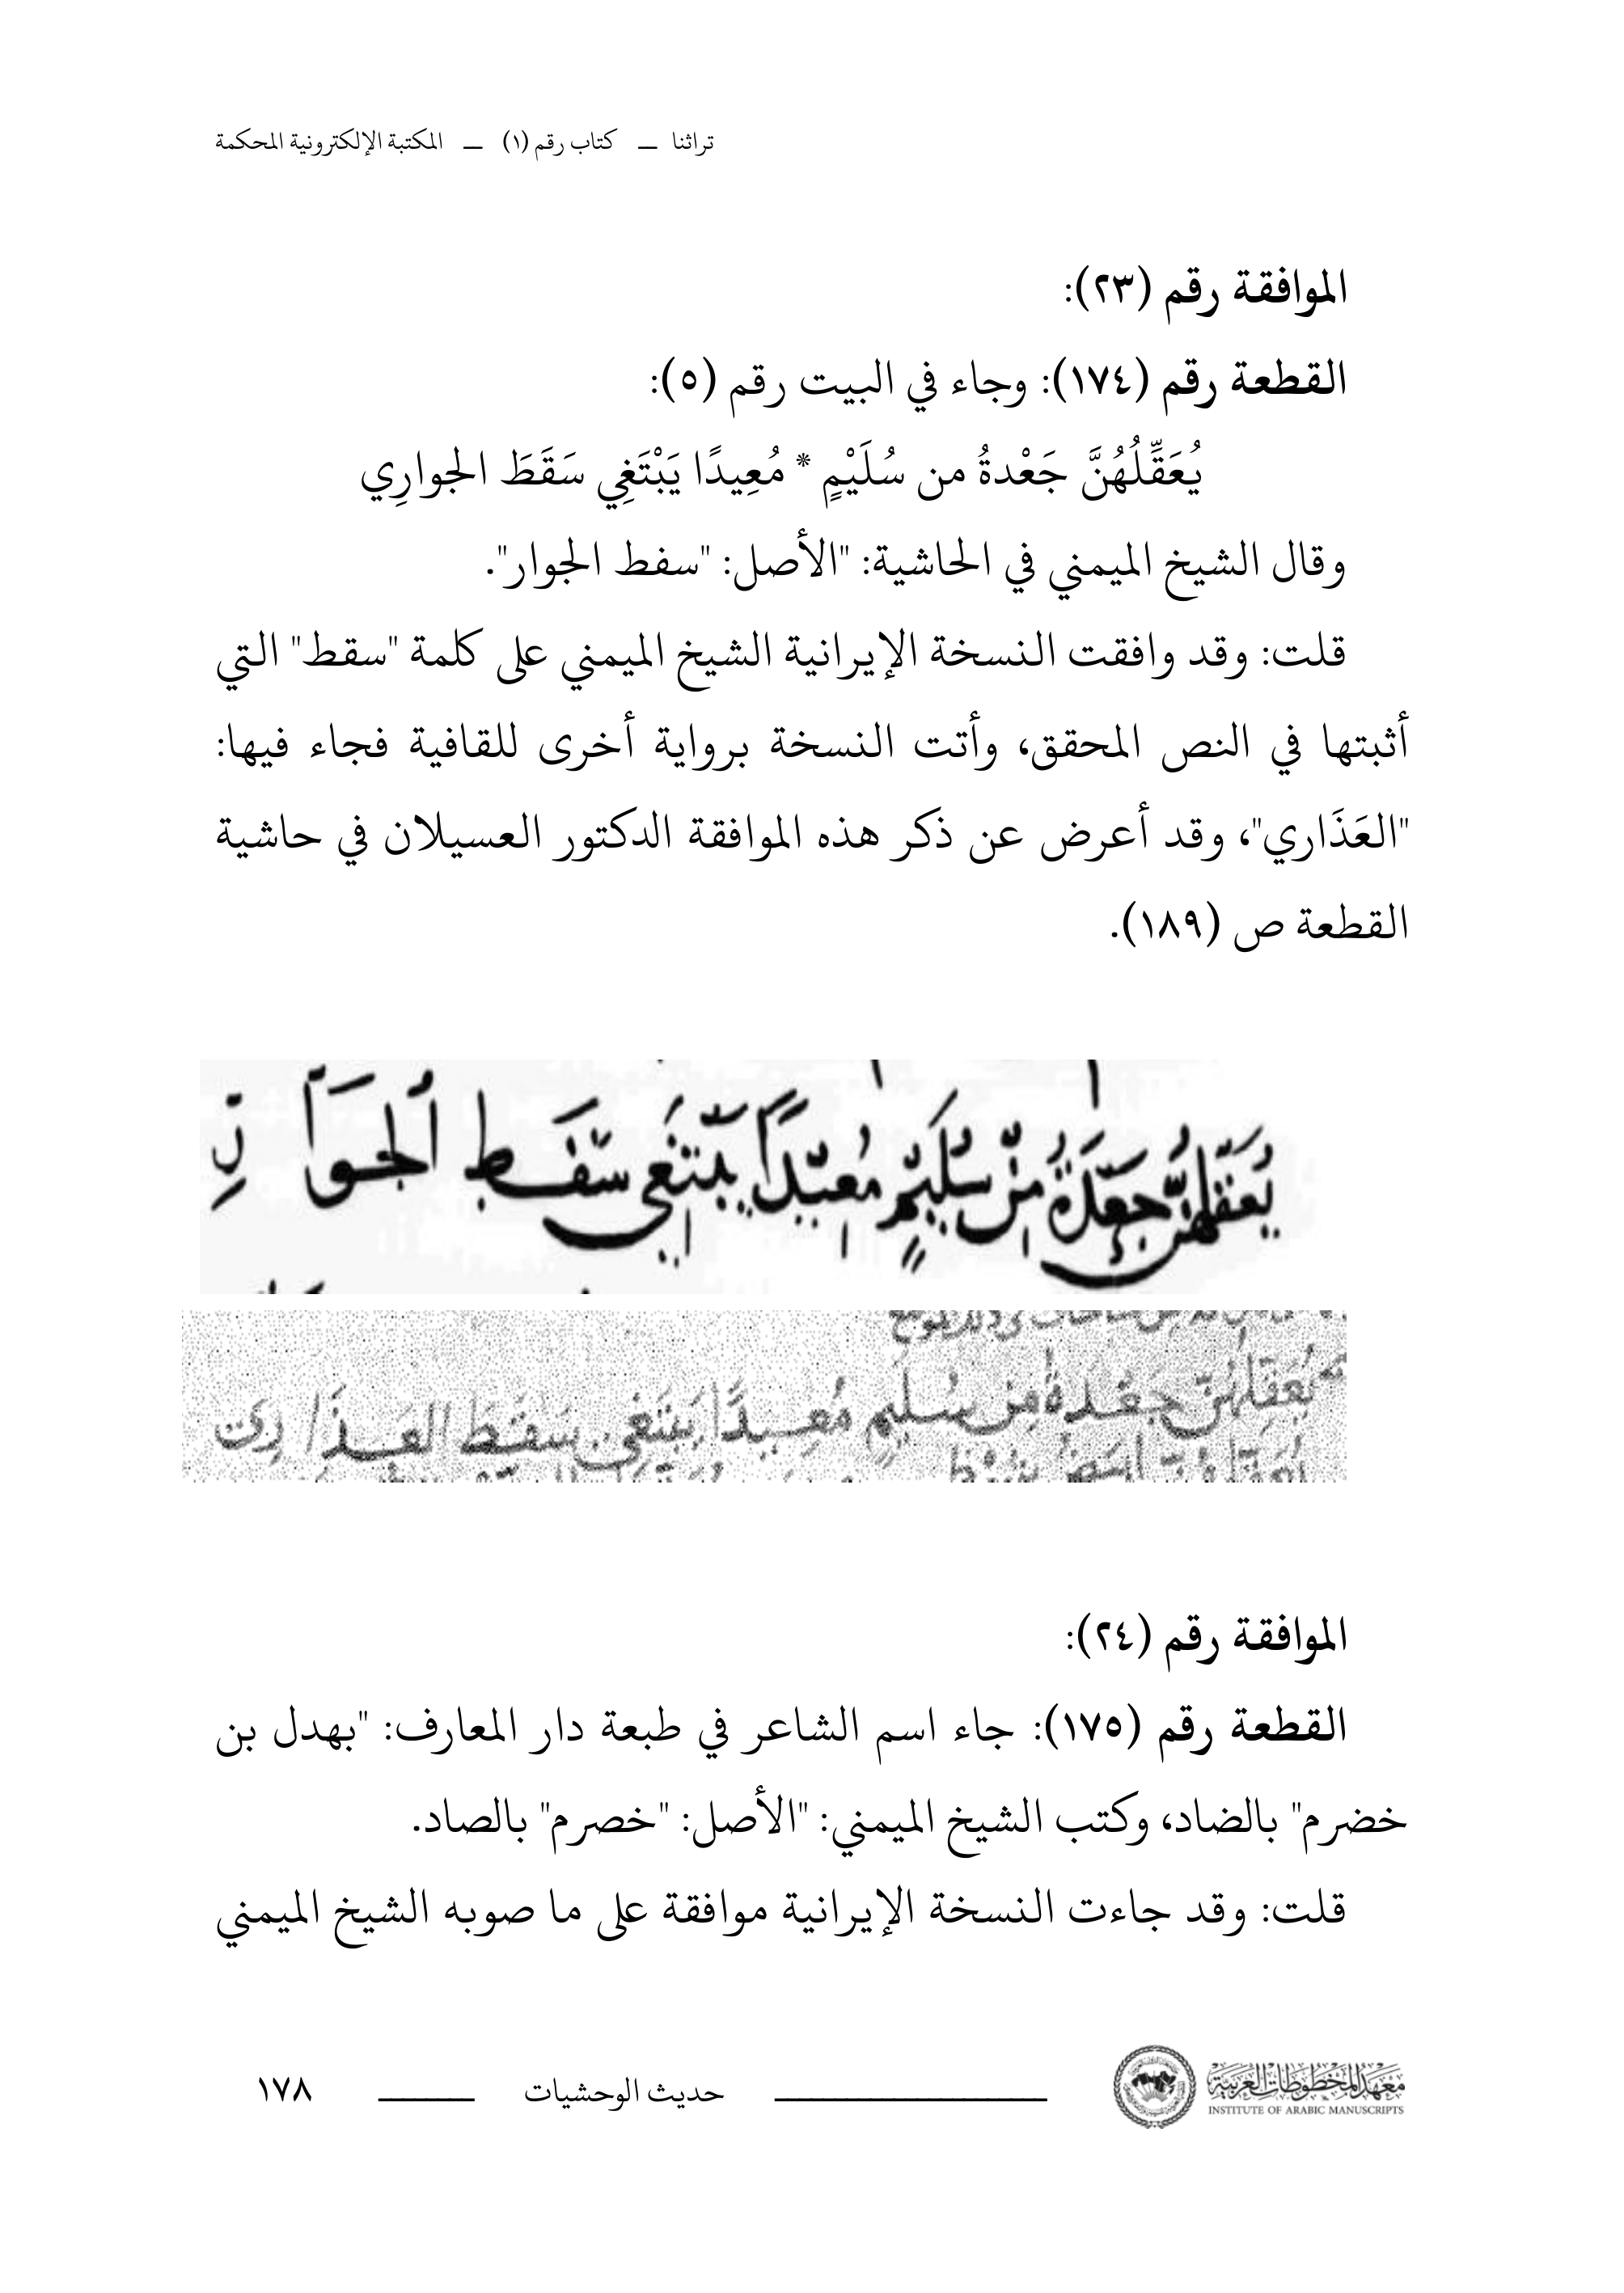 تراثنا — كتاب رقم (١) — المكتبة الإلكترونية المحكمة
الموافقة رقم (٢٣):
القطعة رقم (١٧٤): وجاء في البيت رقم (٥):
يُعَقِّلُهُنَّ جَعْدةُ من سُلَيْمٍ * مُعِيدًا يَبْتَغِي سَقَطَ الجوارِي
وقال الشيخ الميمني في الحاشية: "الأصل: "سفط الجوار".
قلت: وقد وافقت النسخة الإيرانية الشيخ الميمني على كلمة "سقط" التي
أثبتها في النص المحقق، وأتت النسخة برواية أخرى للقافية فجاء فيها:
"العَذَاري"، وقد أعرض عن ذكر هذه الموافقة الدكتور العسيلان في حاشية
القطعة ص (١٨٩).
جَعْدَةُ مِنْ سُلَيْمٍ يَبْتَغِي سَفَط الجَوَارِ
جَعْدَةُ مِن سُلَيمٍ مُعِيدًا يَبتَغِي سَقَطَ العَذَارِي
الموافقة رقم (٢٤):
القطعة رقم (١٧٥): جاء اسم الشاعر في طبعة دار المعارف: "بهدل بن
خضرم" بالضاد، وكتب الشيخ الميمني: "الأصل: "خصرم" بالصاد.
قلت: وقد جاءت النسخة الإيرانية موافقة على ما صوبه الشيخ الميمني
معهد المخطوطات العربية
INSTITUTE OF ARABIC MANUSCRIPTS
حديث الوحشيات
١٧٨